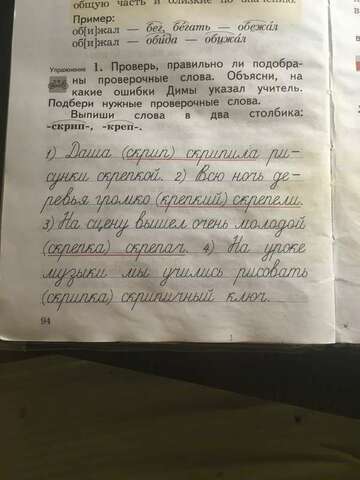 общую часть и близкие по значению.
Пример:
об[и]жал — бег, бегать — обежал
об[и]жал — обида — обижал
Упражнение 1. Проверь, правильно ли подобра-
ны проверочные слова. Объясни, на
какие ошибки Димы указал учитель.
Подбери нужные проверочные слова.
Выпиши слова в два столбика:
-скрип-, -креп-.
1) Даша (скрип) скрипила ри-
сунки скрепкой. 2) Всю ночь де-
ревья громко (крепкий) скрепели.
3) На сцену вышел очень молодой
(скрепка) скрепач. 4) На уроке
музыки мы учились рисовать
(скрипка) скрипичный ключ.
94